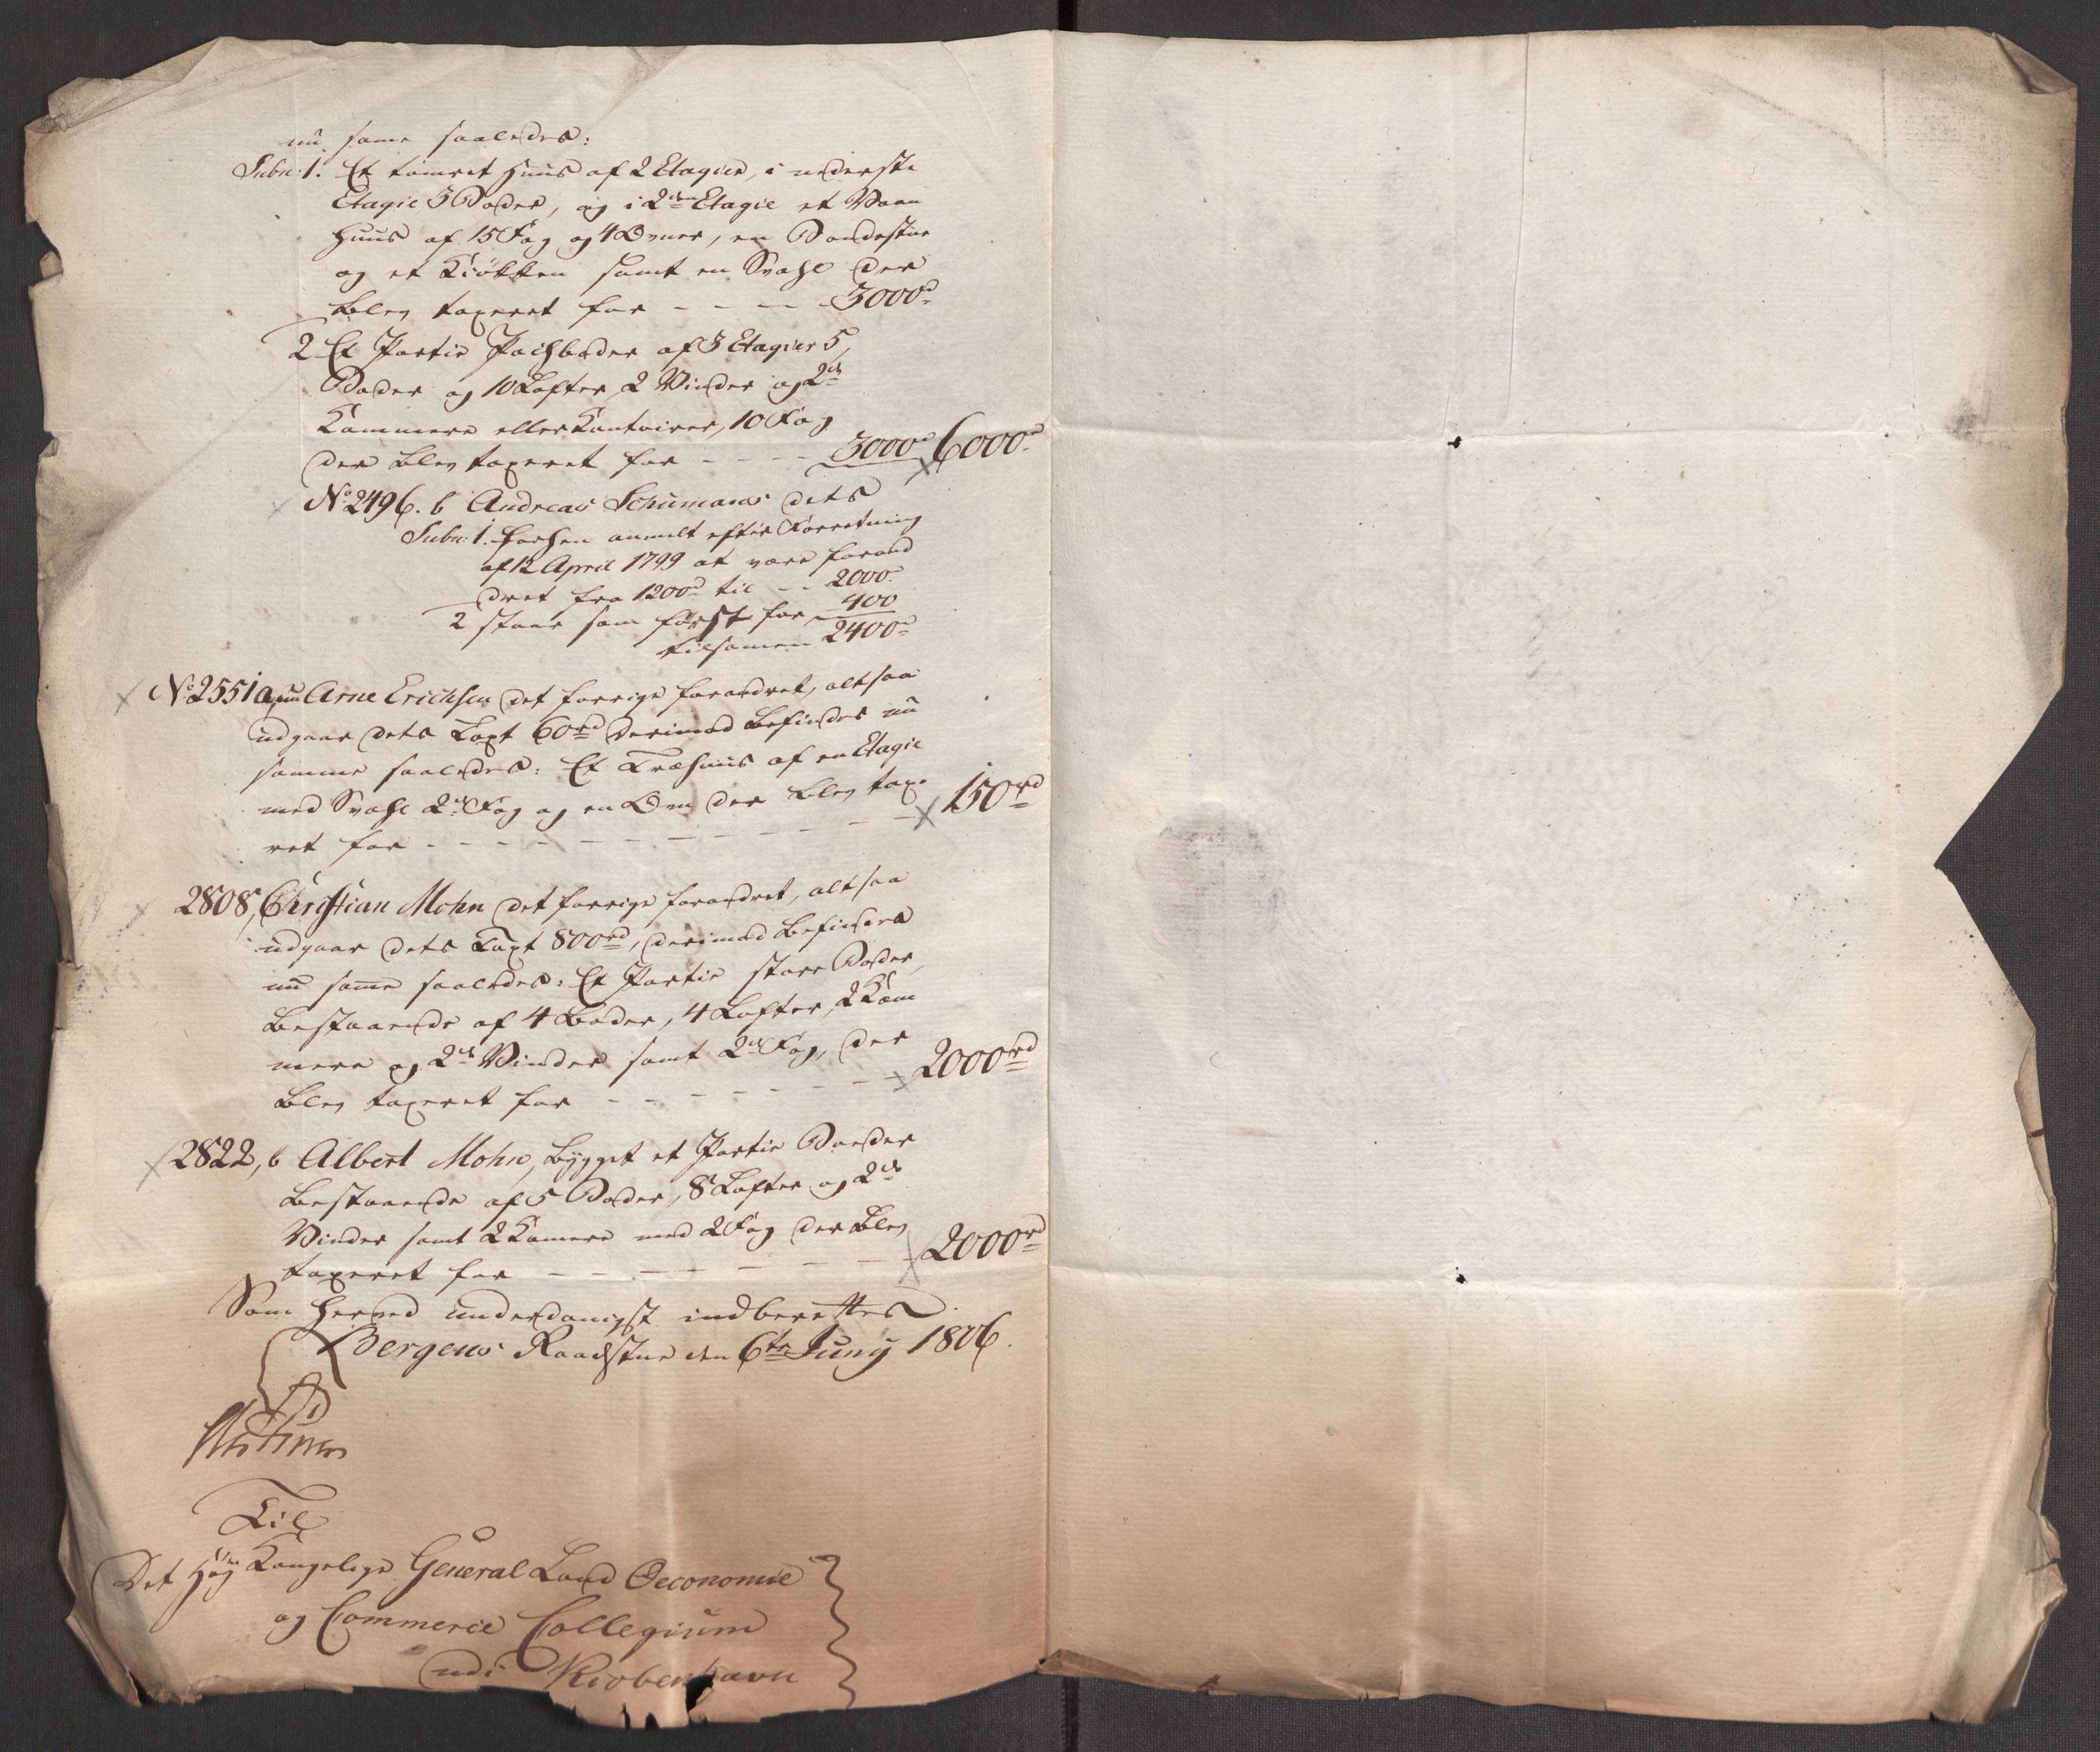 nu same saaledes:
Subn: 1. Et tømret Huus af 2 Etagier, i nederste
Etagie 3 Boder, og i 2den Etagie et Vaan
Huus af 15 Fag og 4 Ovner, en Bondestue
og et Kiøkken samt en Svahl der
blev taxeret for - - - - 3000rd
2 Et Partie Pachboder af 3 Etagier 5,
Boder og 10 Lofter 2 Vinder og 2de
Kammere eller Kontoirer, 10 Fag
der blev taxeret for - - - - 3000rd 6000rd
No 2496. b Andreas Schumans dets
Subn: 1. forhen anmelt efter Forretning
af 12 April 1799 at være forand
dret fra 1200rd til - - 2000rd
2 staar som først for 400
tilsamen 2400rd
No 2551 a, nu Arne Erichsen det forrige forandret, altsaa
udgaar dets Taxt 60rd derimod befindes nu
samme saaledes: Et Træhuus af en Etagie
med Svahl 2de Fag og en Ovn der blev taxe
ret for - - - - - - - - - 150rd
2808, Christian Mohn det forrige forandret, altsaa
udgaar dets Taxt 800rd, derimod befindes
nu same saaledes: Et Partie store Boder,
bestaaende af 4 Boder, 4 Lofter, 2 Kam
mere og 2de Vinder samt 2de Fag, der
blev taxeret for - - - - - - - 2000rd
2822, b Albert Mohn, bygget et Partie Boeder
bestaaende af 5 Boder, 8 Lofter og 2de
Vinder samt 2 Kamere med 2 Fag der blev
taxeret for - - - - - - - 2000rd
Som herved underdanigst indberettes
Bergens Raadstue den 6te Juny 1806.
Til
Det Høy Kongelige General Land Oeconomie
og Commerce Collegium
udi Kiøbenhavn